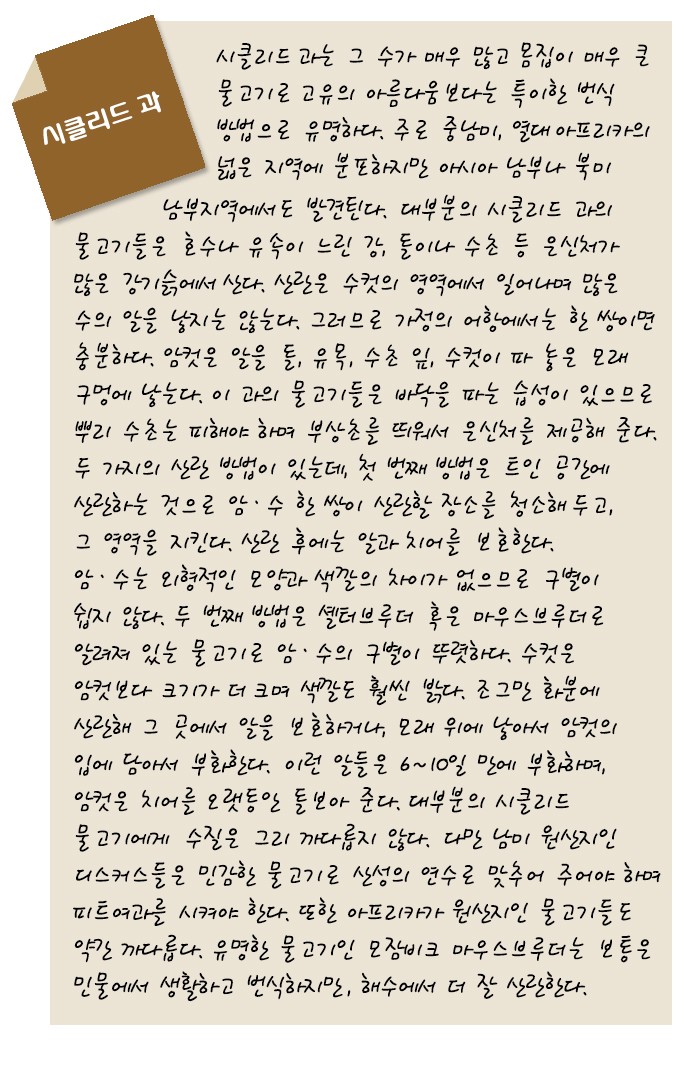 시클리드 과
시클리드 과는 그 수가 매우 많고 몸집이 매우 큰
물고기로 고유의 아름다움보다는 특이한 번식
방법으로 유명하다. 주로 중남미, 열대 아프리카의
넓은 지역에 분포하지만 아시아 남부나 북미
남부지역에서도 발견된다. 대부분의 시클리드 과의
물고기들은 호수나 유속이 느린 강, 돌이나 수초 등 은신처가
많은 강기슭에서 산다. 산란은 수컷의 영역에서 일어나며 많은
수의 알을 낳지는 않는다. 그러므로 가정의 어항에서는 한 쌍이면
충분하다. 암컷은 알을 돌, 유목, 수초 잎, 수컷이 파 놓은 모래
구멍에 낳는다. 이 과의 물고기들은 바닥을 파는 습성이 있으므로
뿌리 수초는 피해야 하며 부상초를 띄워서 은신처를 제공해 준다.
두 가지의 산란 방법이 있는데, 첫 번째 방법은 트인 공간에
산란하는 것으로 암·수 한 쌍이 산란할 장소를 청소해 두고,
그 영역을 지킨다. 산란 후에는 알과 치어를 보호한다.
암·수는 외형적인 모양과 색깔의 차이가 없으므로 구별이
쉽지 않다. 두 번째 방법은 셸터브루더 혹은 마우스브루더로
알려져 있는 물고기로 암·수의 구별이 뚜렷하다. 수컷은
암컷보다 크기가 더 크며 색깔도 훨씬 밝다. 조그만 화분에
산란해 그 곳에서 알을 보호하거나, 모래 위에 낳아서 암컷의
입에 담아서 부화한다. 이런 알들은 6~10일 만에 부화하며,
암컷은 치어를 오랫동안 돌보아 준다. 대부분의 시클리드
물고기에게 수질은 그리 까다롭지 않다. 다만 남미 원산지인
디스커스들은 민감한 물고기로 산성의 연수로 맞추어 주어야 하며
피트여과를 시켜야 한다. 또한 아프리카가 원산지인 물고기들도
약간 까다롭다. 유명한 물고기인 모잠비크 마우스브루더는 보통은
민물에서 생활하고 번식하지만, 해수에서 더 잘 산란한다.